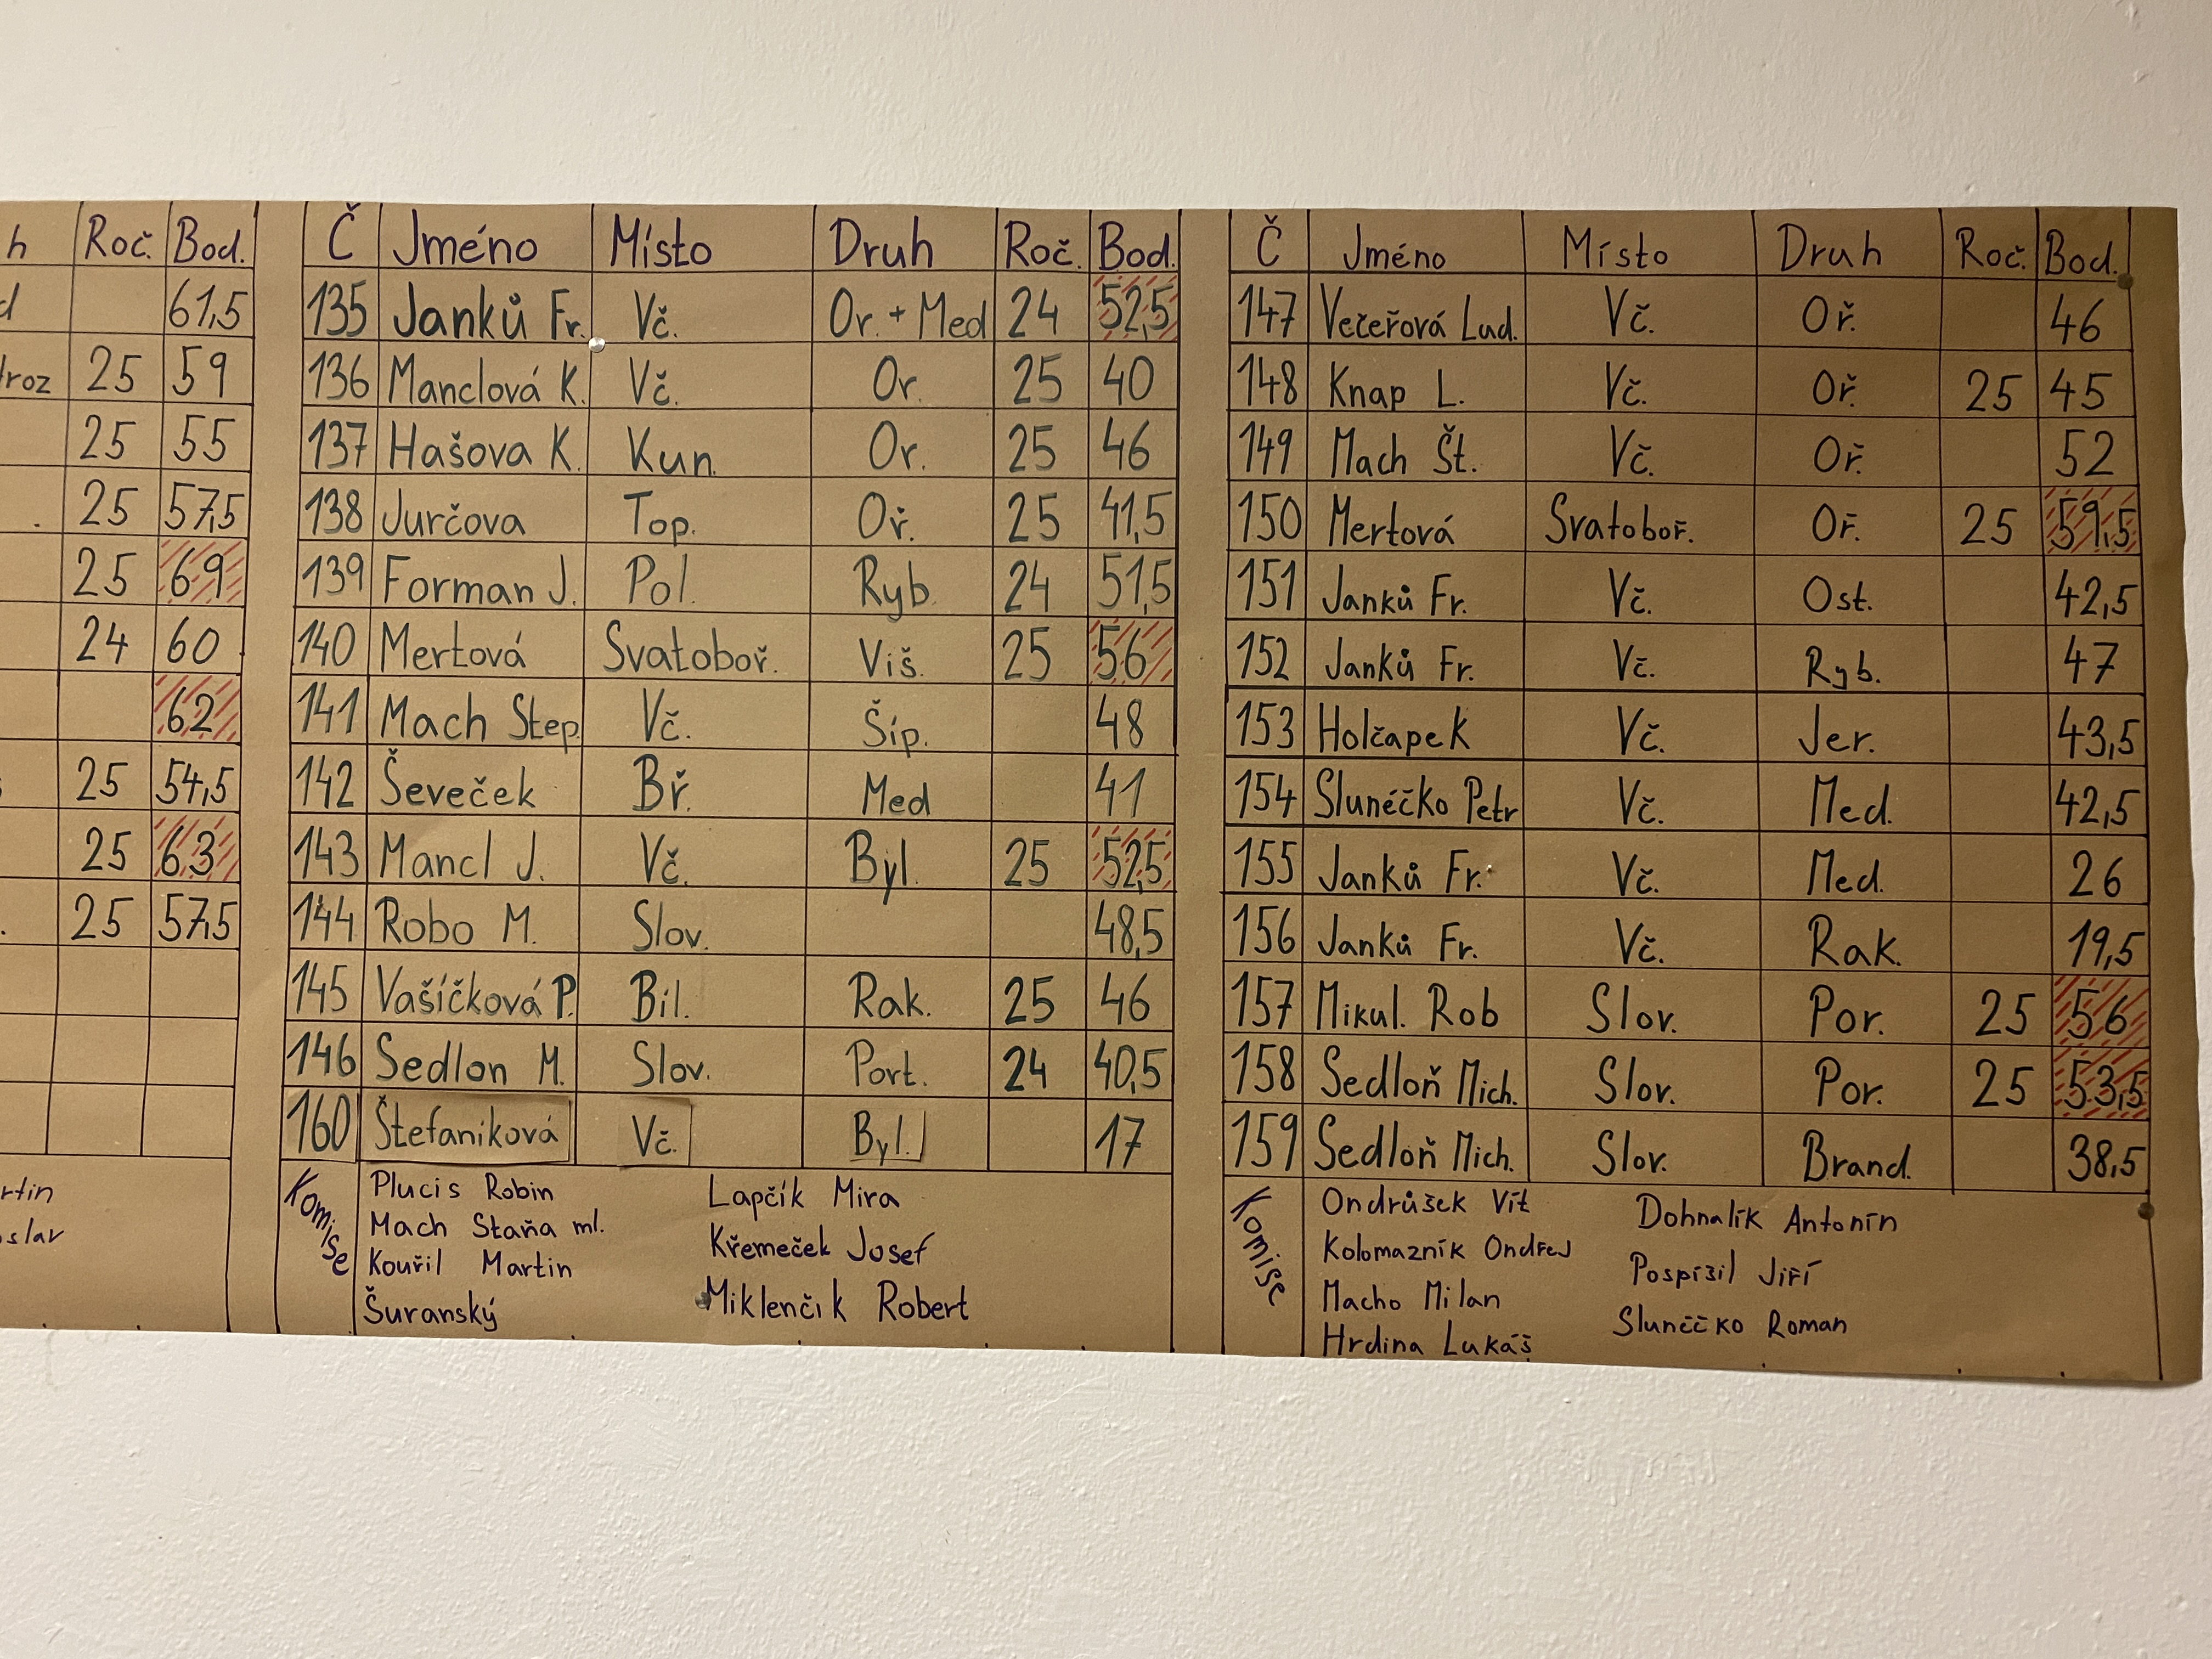 h Roč. Bod.
61,5
roz 25 59
25 55
. 25 57,5
25 69
24 60
62
25 54,5
25 63
. 25 57,5
rtin
oslav
Č Jméno Místo Druh Roč. Bod.
135 Janků Fr. Vč. Or. + Med 24 52,5
136 Manclová K. Vč. Or. 25 40
137 Hašova K. Kun. Or. 25 46
138 Jurčova Top. Oř. 25 41,5
139 Forman J. Pol. Ryb. 24 51,5
140 Mertová Svatoboř. Viš. 25 56
141 Mach Step. Vč. Šíp. 48
142 Ševeček Bř. Med 41
143 Mancl J. Vč. Byl. 25 52,5
144 Robo M. Slov. 48,5
145 Vašíčková P. Bíl. Rak. 25 46
146 Sedlon M. Slov. Port. 24 40,5
160 Štefaniková Vč. Byl. 17
Komise
Plucis Robin Lapčík Mira
Mach Staňa ml. Křemeček Josef
Kouřil Martin Miklenčik Robert
Šuranský
Č Jméno Místo Druh Roč. Bod.
147 Večeřová Lud. Vč. Oř. 46
148 Knap L. Vč. Oř. 25 45
149 Mach Št. Vč. Oř. 52
150 Mertová Svatoboř. Oř. 25 59,5
151 Janků Fr. Vč. Ost. 42,5
152 Janků Fr. Vč. Ryb. 47
153 Holčapek Vč. Jer. 43,5
154 Slunéčko Petr Vč. Med. 42,5
155 Janků Fr. Vč. Med. 26
156 Janků Fr. Vč. Rak. 19,5
157 Mikul. Rob Slov. Por. 25 56
158 Sedloň Mich. Slov. Por. 25 53,5
159 Sedloň Mich. Slov. Brand. 38,5
Komise
Ondrůšek Vít Dohnalík Antonín
Kolomazník Ondřej Pospíšil Jiří
Macho Milan Slunéčko Roman
Hrdina Lukáš